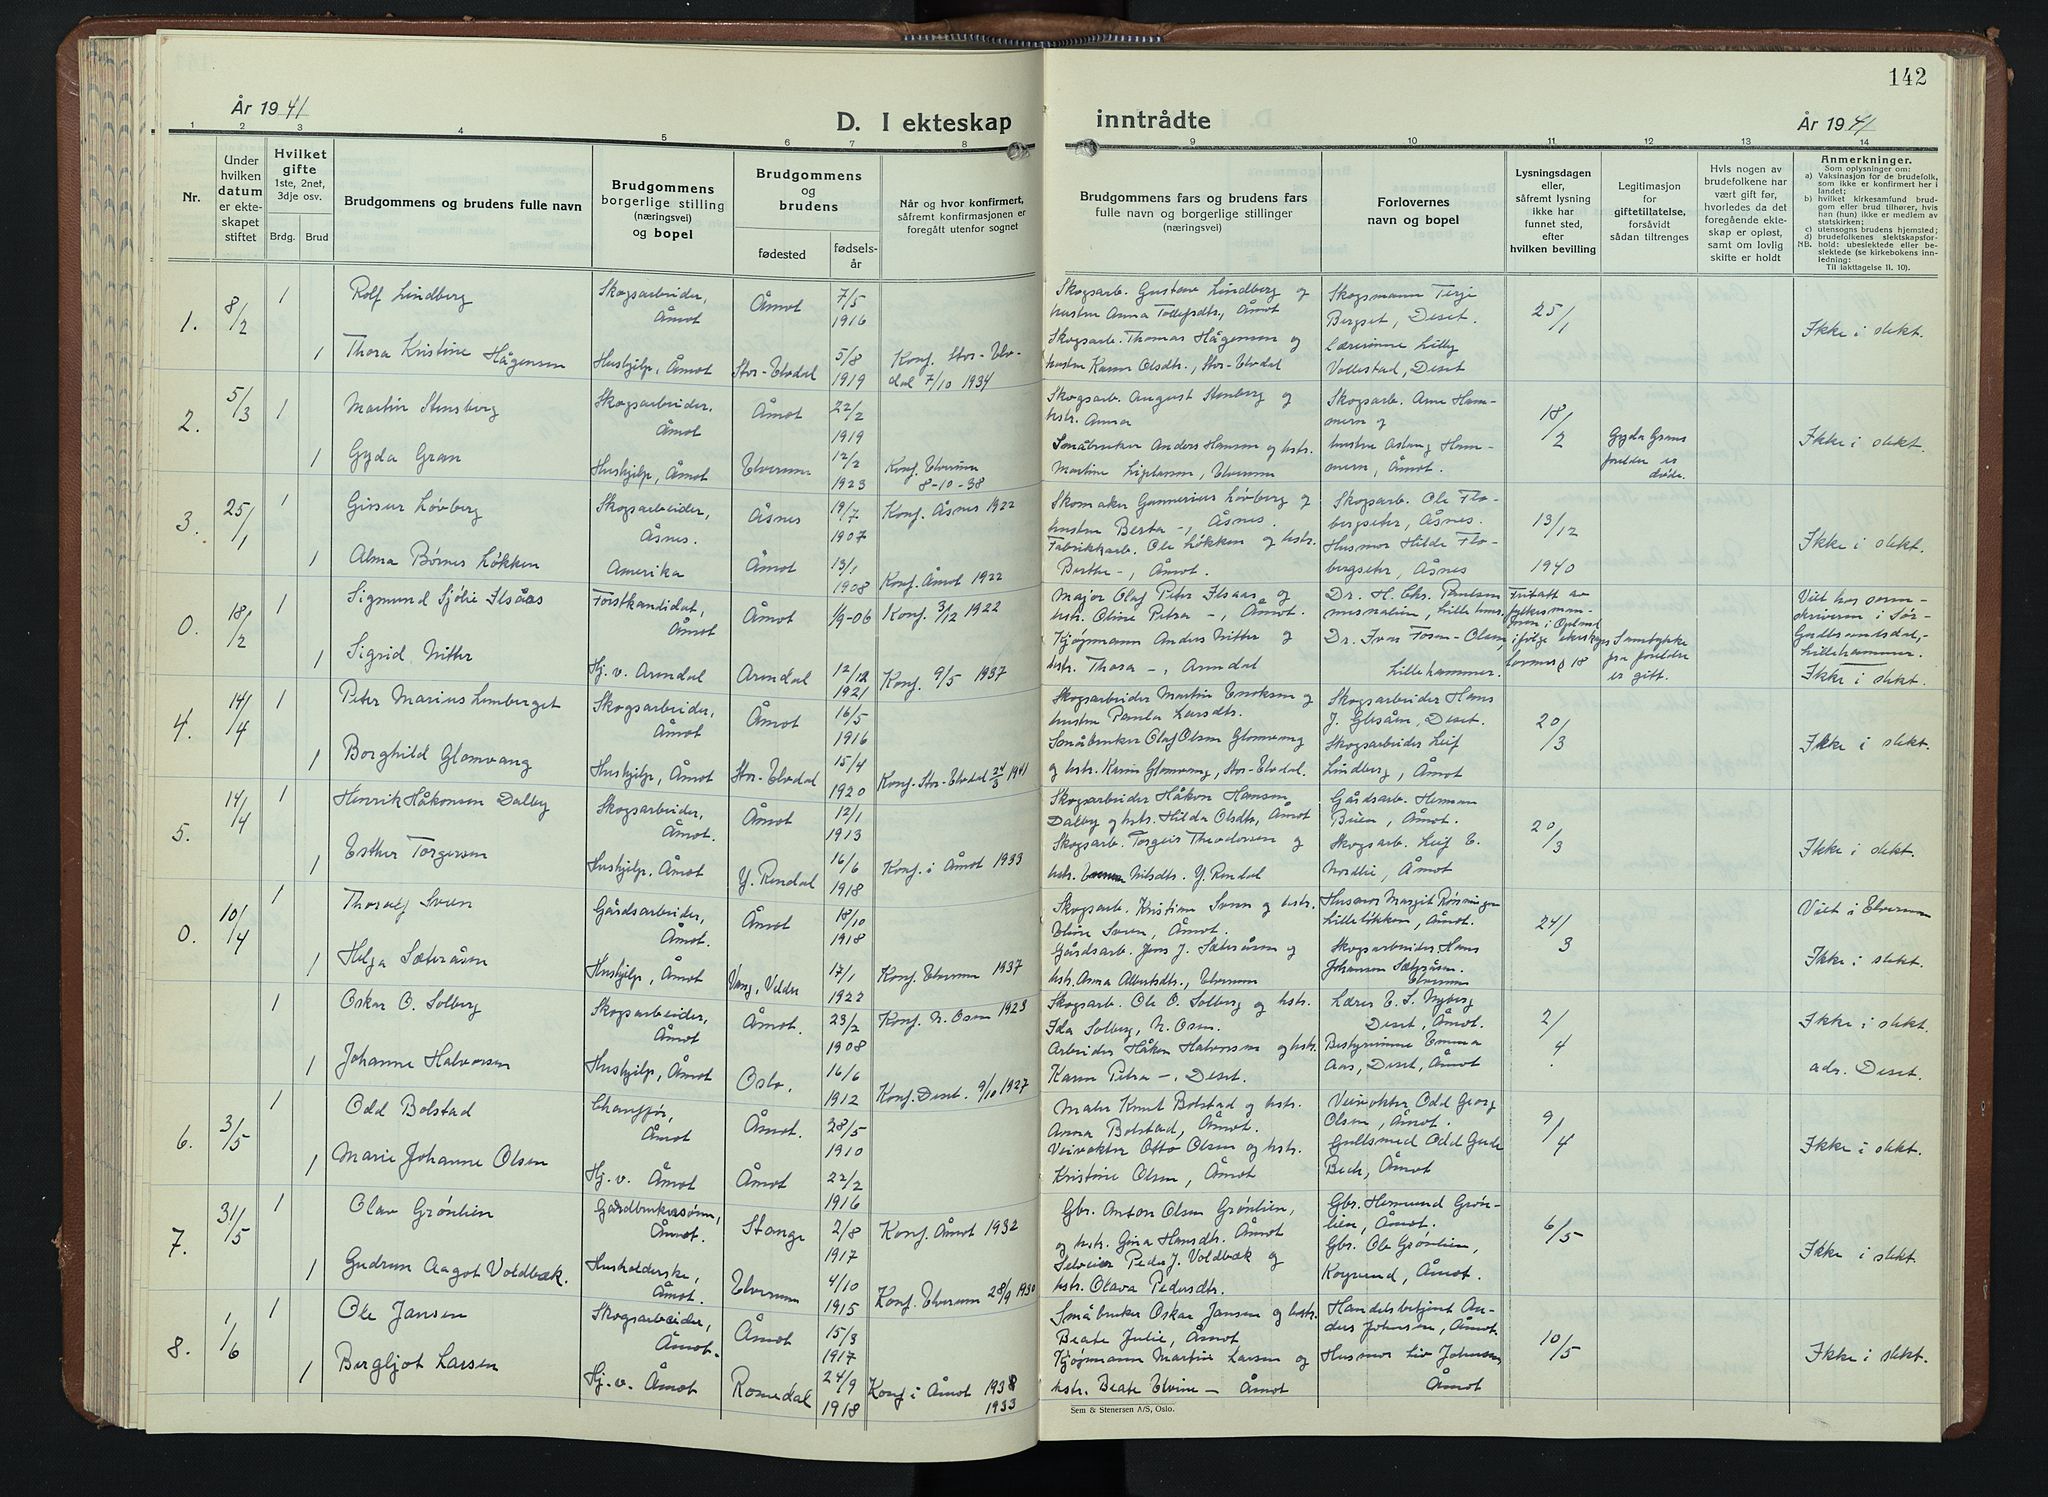 142
År 1941
D. I ekteskap inntrådte
År 1941
1 2 3 4 5 6 7 8 9 10 11 12 13 14
Nr.
Under
hvilken
datum
er ekte-
skapet
stiftet
Hvilket
gifte
1ste, 2net,
3dje osv.
Brdg. Brud
Brudgommens og brudens fulle navn
Brudgommens
borgerlige stilling
(næringsvei)
og bopel
Brudgommens
og
brudens
fødested
fødsels-
år
Når og hvor konfirmert,
såfremt konfirmasjonen er
foregått utenfor sognet
Brudgommens fars og brudens fars
fulle navn og borgerlige stillinger
(næringsvei)
Forlovernes
navn og bopel
Lysningsdagen
eller,
såfremt lysning
ikke har
funnet sted,
efter
hvilken bevilling
Legitimasjon
for
giftetillatelse,
forsåvidt
sådan tiltrenges
Hvis nogen av
brudefolkene har
vært gift før,
hvorledes da det
foregående ekte-
skap er opløst,
samt om lovlig
skifte er holdt
Anmerkninger.
Som oplysninger om:
a) Vaksinasjon for de brudefolk,
som ikke er konfirmert her i
landet;
b) hvilket kirkesamfund brud-
gom eller brud tilhører, hvis
han (hun) ikke er medlem av
statskirken;
c) utensogns brudens hjemsted;
d) brudefolkenes slektskapsfor-
NB. hold: ubeslektede eller be-
slektede (se kirkebokens inn-
ledning:
Til iakttagelse II. 10).
1. 8/2 1 Rolf Lindberg
Skogsarbeider,
Åmot
Åmot
7/5
1916
Skogsarb. Gustav Lindberg og
hustru Anna Tollefsdtr., Åmot
Skogsmann Terje
Bergset, Deset.
25/1
Ikke i slekt.
1 Thora Kristine Hågensen
Hushjelp, Åmot
Stor-Elvdal
5/8
1919
Konf. Stor-Elv-
dal 7/10 1934
Skogsarb. Thomas Hågensen og
hustru Karen Olsdtr., Stor-Elvdal
Lærerinne Lilly
Vollestad, Deset
2. 5/3 1 Martin Stenberg
Skogsarbeider,
Åmot
Åmot
22/2
1919
Skogsarb. August Stenberg og
hstr. Anna
Skogsarb. Arne Ham-
mern og
18/2
Gyda Grans
foreldre er
døde.
Ikke i slekt.
1 Gyda Gran
Hushjelp, Åmot
Elverum
12/2
1923
Konf. Elverum
8-10-38
Småbruker Anders Hansen og hstr.
Martine Elverum
hustru Aslaug Ham-
mern, Åmot.
3. 25/1 1 Løvberg
Skogsarbeider,
Åsnes.
Åsnes
19/7
1907
Konf. Åsnes 1922
Skomaker Gunnerius Løvberg og
hustru Berta -, Åsnes.
Skogsarb. Ole Flo-
bergseter, Åsnes.
13/12
1940
Ikke i slekt.
1 Alma Børnes Løkken
Amerika
Åmot
13/1
1908
Konf. Åmot 1922
Fabrikkarb. Ole Løkken og hstr.
Berthe -, Åmot.
Husmor Hilde Flo-
bergseter, Åsnes
0. 18/2 1 Sigmund Sjølie Ilsaas
Forstkandidat,
Åmot
Åmot
1/9-06
Konf. 3/12 1922
Major Olaf Peter Ilsaas og
hstr. Oline Petra -, Åmot.
Dr. H. Chr. Paulsen
Fritatt av
fylkesman-
nen i Opland
ifølge ekteskaps
lovens § 18
Samtykke
fra foreldre
er gitt.
Vilt hos soren-
skriveren i Sør-
Gudbrandsdal,-
Lillehammer.
Ikke i slekt.
1 Sigrid Nitter
Hj. v. Arendal
Arendal
12/12
1921
Konf. 9/5 1937
Kjøpmann Anders Nitter og
hstr. Thora -, Arendal
Dr. Ivar Fosen-Olsen,
Lillehammer.
4. 14/4 1 Peter Marius Lemberget
Skogsarbeider,
Åmot
Åmot
16/5
1916
Skogsarbeider Martin Eriksen og
hustru Paula Larsdtr.
Skogsarbeider Hans
J. Glesåen, Deset.
20/3
Ikke i slekt.
1 Borghild Glomvang
Hushjelp, Åmot
Stor-Elvdal
15/4
1920
Konf. Stor-Elvdal 24/3 1941
Småbruker Olaf Olsen Glomvang
og hstr. Karen Glomvang, Stor-Elvdal.
Skogsarbeider Leif
Lindberg, Åmot
5. 14/4 1 Henrik Håkonsen Dalby
Skogsarbeider,
Åmot.
Åmot
12/1
1913
Skogsarbeider Håkon Hansen
Dalby og hstr. Hilda Olsdtr, Åmot
Gårdsarb. Herman
Buen, Åmot.
20/3
Ikke i slekt.
1 Esther Torgersen
Hushjelp, Åmot
Y. Rendal
16/6
1918
Konf. i Åmot 1933
Skogsarb. Torgeir Theodorsen og
hstr. Nilsdtr. Y. Rendal
Skogsarb. Leif E.
Nordlie, Åmot
0. 10/4 1 Thoralf Sveen
Gårdsarbeider,
Åmot.
Åmot
18/10
1918
Skogsarb. Kristian Sveen og hstr.
Eline Sveen, Åmot.
Husmor Margit Rønningen
Lilleløkken, Åmot.
24/3
Vilt i Elverum
Ikke i slekt.
1 Helga Sæteråsen
Hushjelp, Åmot
Vang, Valdres
17/1
1922
Konf. Elverum 1937
Gårdsarb. Jens J. Sæteråsen og
hstr. Anna Albertsdtr., Elverum
Skogsarbeider Hans
Johansen Sæteråsen.
Elverum
1 Oskar O. Solberg
Skogsarbeider,
Åmot
Åmot.
23/2
1908
Konf. N. Osen 1923
Skogsarb. Ole O. Solberg og hstr.
Ida Solberg, N. Osen.
Lærer E. S. Nyberg
Deset, Åmot.
2/4
Ikke i slekt.
adr. Deset.
1 Johanne Halvorsen
Hushjelp, Åmot
Oslo.
16/6
1912
Konf. Deset. 9/10 1927
Arbeider Håken Halvorsen og hstr.
Karen Petra -, Deset.
Bestyrerinne Emma
Aas, Deset, Åmot
6. 3/5 1 Odd Bolstad
Chauffør,
Åmot
Åmot.
28/5
1910
Maler Knut Bolstad og hstr.
Anna Bolstad, Åmot.
Veivokter Odd Georg
Olsen, Åmot.
9/4
Ikke i slekt.
1 Marie Johanne Olsen
Hj. v. Åmot
Åmot
22/2
1916
Veivokter Otto Olsen og hstr.
Kristine Olsen, Åmot
Gullsmed Odd Gude
Bech, Åmot
7. 31/5 1 Olav Grønlien
Gårdbrukersønn,
Åmot.
Stange
2/8
1917
Konf. Åmot 1932
Gbr. Anton Olsen Grønlien,
og hstr. Gina Hansdtr. Åmot
Gbr. Hermund Grøn-
lien, Åmot.
6/5
Ikke i slekt.
1 Gudrun Aagot Voldbæk.
Husholderske,
Åmot.
Elverum
4/10
1915
Konf. Elverum 28/9 1930
Selveier Peder J. Voldbæk og
hstr. Olava Pedersdtr.
Gbr. Ole Grønlien,
Åmot.
8. 1/6 1 Ole Jansen
Skogsarbeider,
Åmot.
Åmot
15/3
1917
Småbruker Oskar Jansen og hstr.
Beate Julie, Åmot
Handelsbetjent An-
ders Johnsen, Åmot.
10/5
Ikke i slekt.
1 Bergljot Larsen
Hj. v. Åmot
Romedal
24/9
1918
Konf i Åmot 1938
1933
Kjøpmann Martin Larsen og
hstr. Beate Elvine - Åmot
Husmor Liv Johnsen
Åmot
Sem & Stenersen A/S, Oslo.